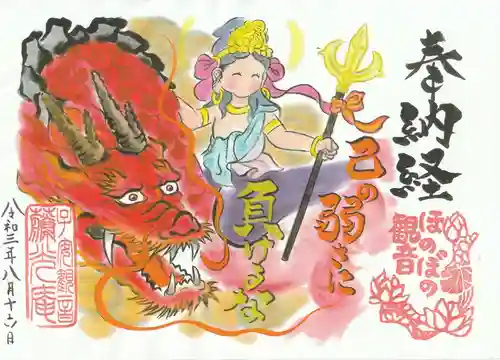 奉納経
己の弱さに
負けるな
ほのぼの
観音
子安観音
藤之庵
令和三年八月十六日